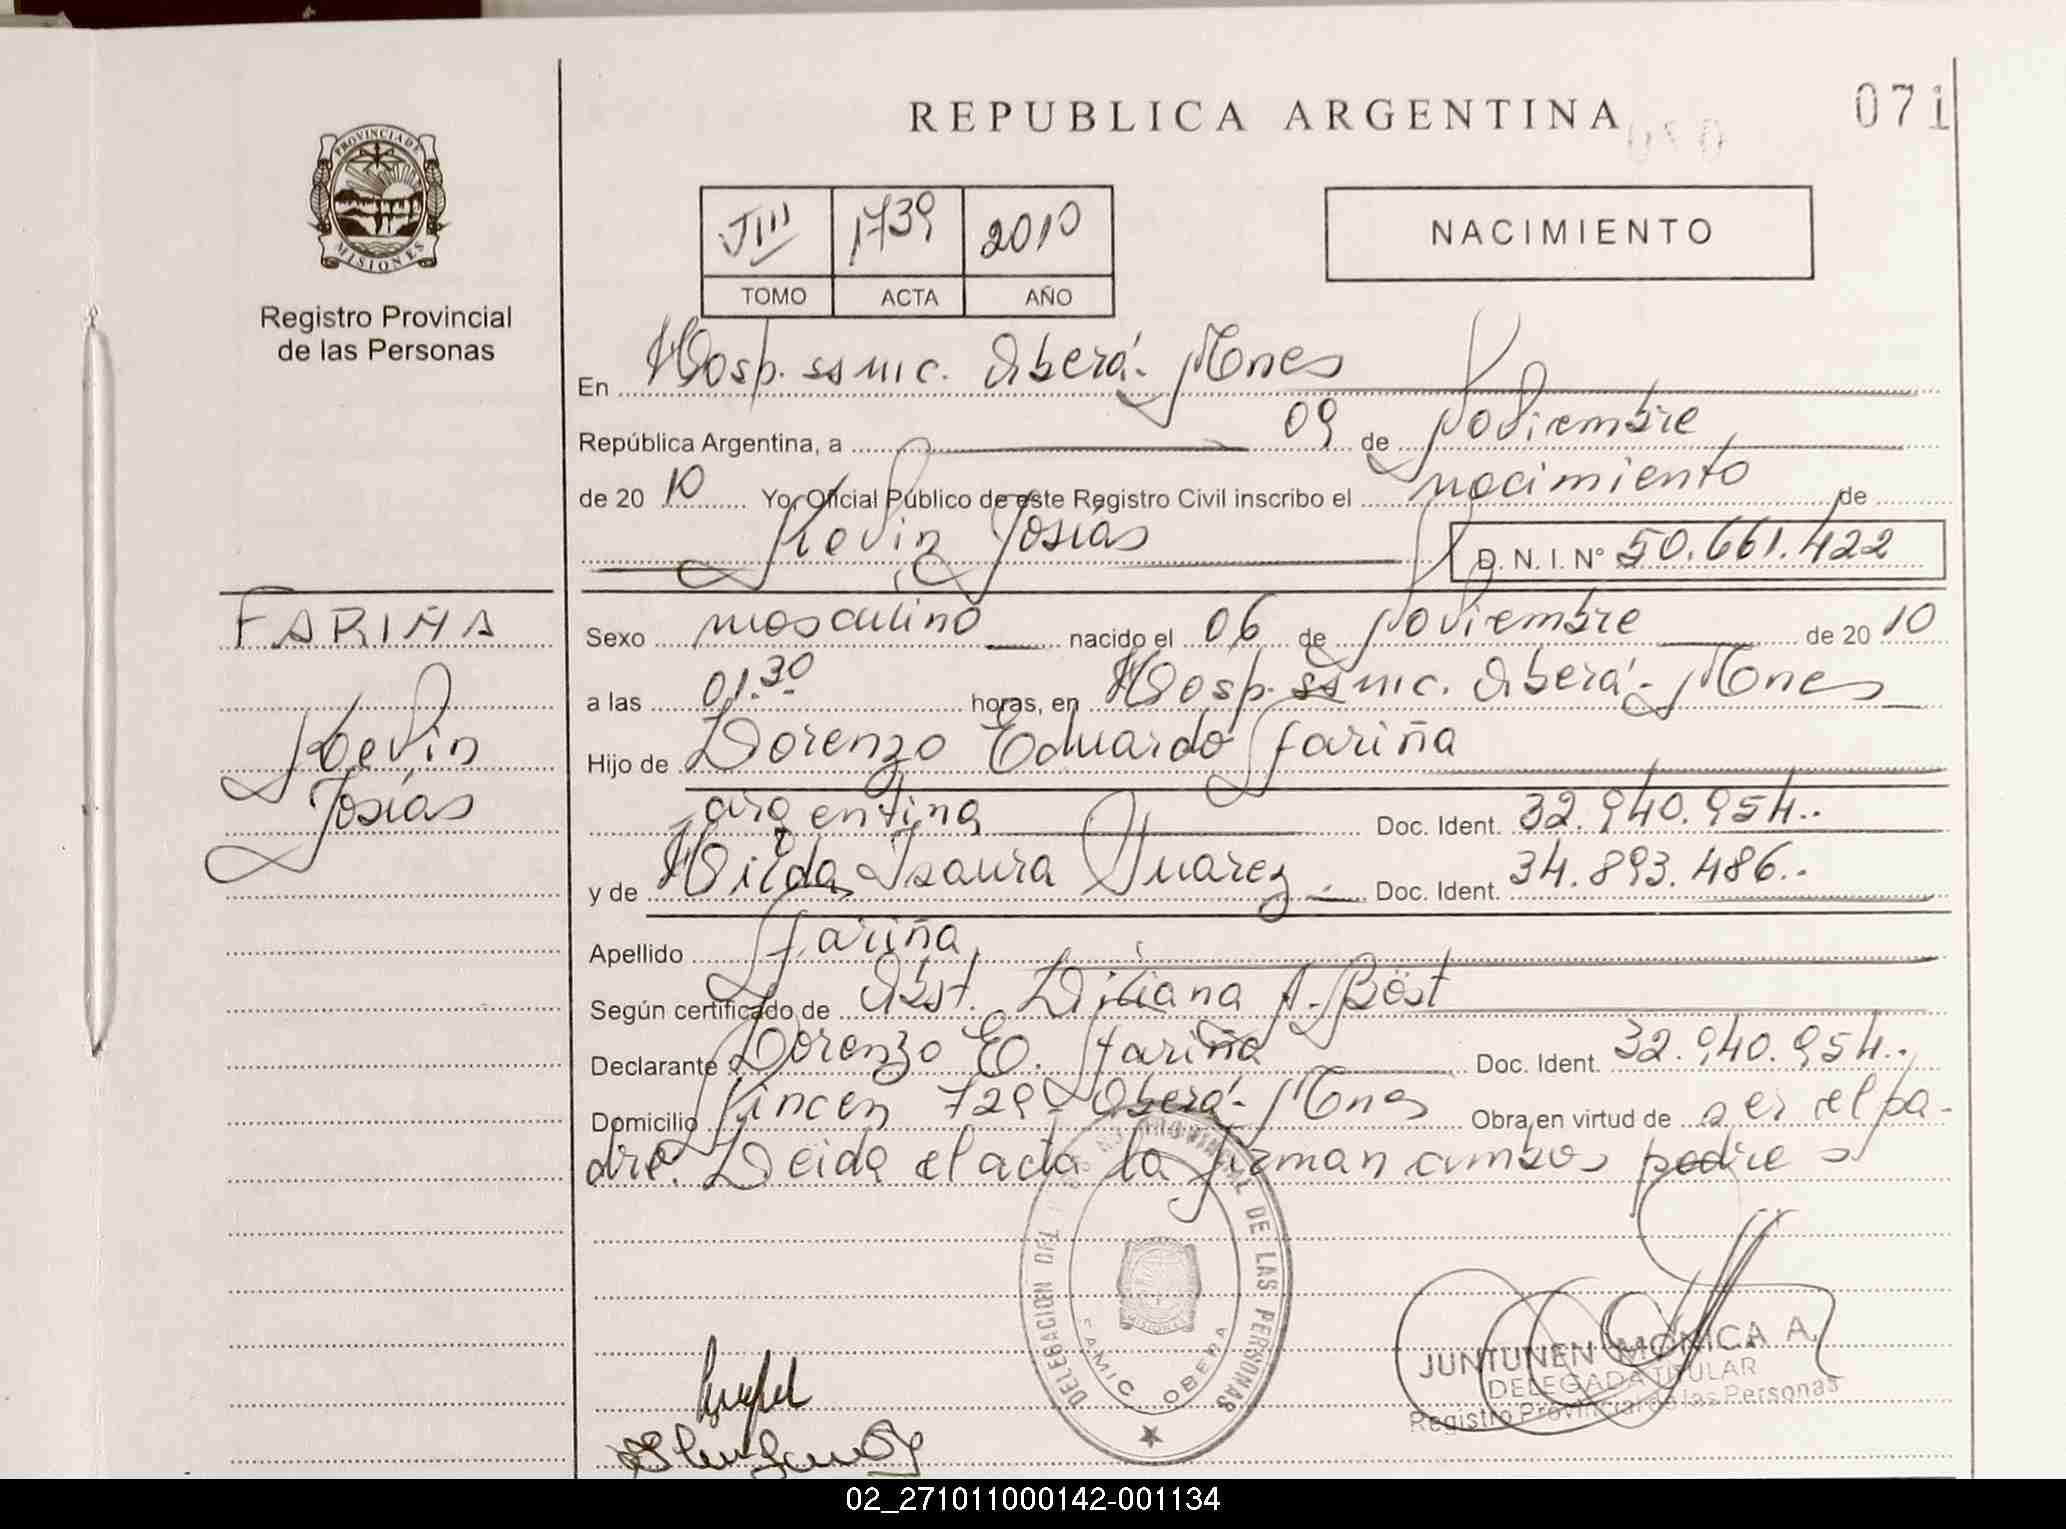 REPUBLICA ARGENTINA
071
PROVINCIA DE
MISIONES
Registro Provincial
de las Personas
1739 2010
TOMO ACTA AÑO
NACIMIENTO
En Hosp. ssmic. Oberá - Mnes
República Argentina, a 09 de Noviembre
de 2010 Yo, Oficial Público de este Registro Civil inscribo el nacimiento de
Kevin Josías D. N. I. Nº 50.661.422
FARIÑA
Kevin
Josías
Sexo masculino nacido el 06 de Noviembre de 2010
a las 01.30 horas, en Hosp. ssmic. Oberá - Mnes
Hijo de Lorenzo Eduardo Fariña
argentina Doc. Ident. 32.940.954..
y de Hilda Isaura Juarez Doc. Ident. 34.893.486..
Apellido Fariña
Según certificado de Obst. Liliana A. Böst
Declarante Lorenzo E. Fariña Doc. Ident. 32.940.954..
Domicilio Pincen 729 - Oberá - Mnes Obra en virtud de ser el pa-
dre. Leida el acta la firman ambos padres
DELEGACION DEL PROVINCIAL DE LAS PERSONAS
MISIONES
CAMIC OBERA
JUNTUNEN MONICA A.
DELEGADA TITULAR
Registro Provincial de las Personas
02_271011000142-001134